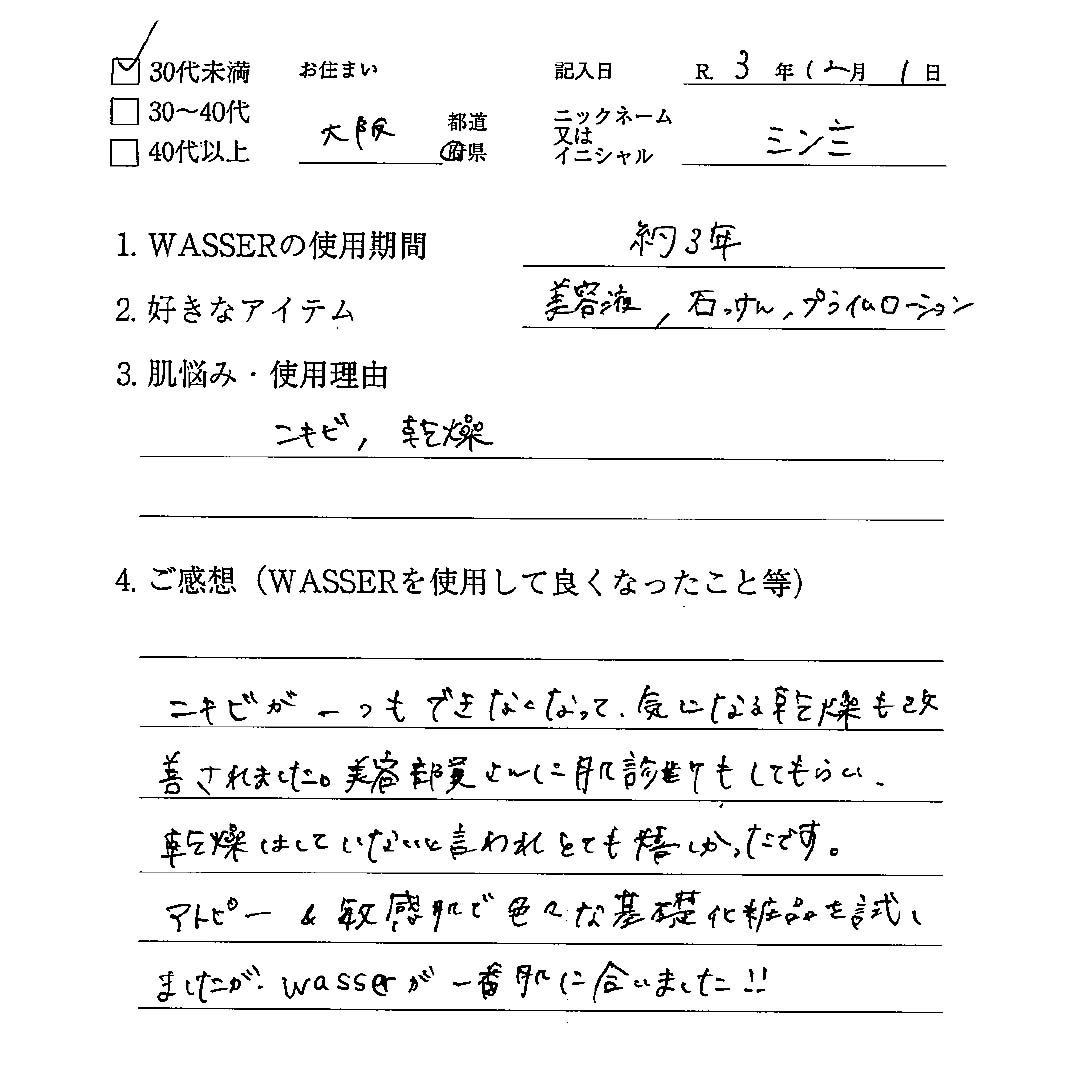 30代未満 お住まい 記入日 R. 3 年 12月 1 日
30〜40代
40代以上 大阪 都道府県 ニックネーム又はイニシャル ミンミ
1. WASSERの使用期間 約3年
2. 好きなアイテム 美容液, 石っけん, プライムローション
3. 肌悩み・使用理由
ニキビ, 乾燥
4. ご感想（WASSERを使用して良くなったこと等）
ニキビが一つもできなくなって、気になる乾燥も改
善されました。美容部員さんに肌診断もしてもらい、
乾燥はしていないと言われとても嬉しかったです。
アトピー & 敏感肌で色々な基礎化粧品を試し
ましたが、wasserが一番肌に合いました!!